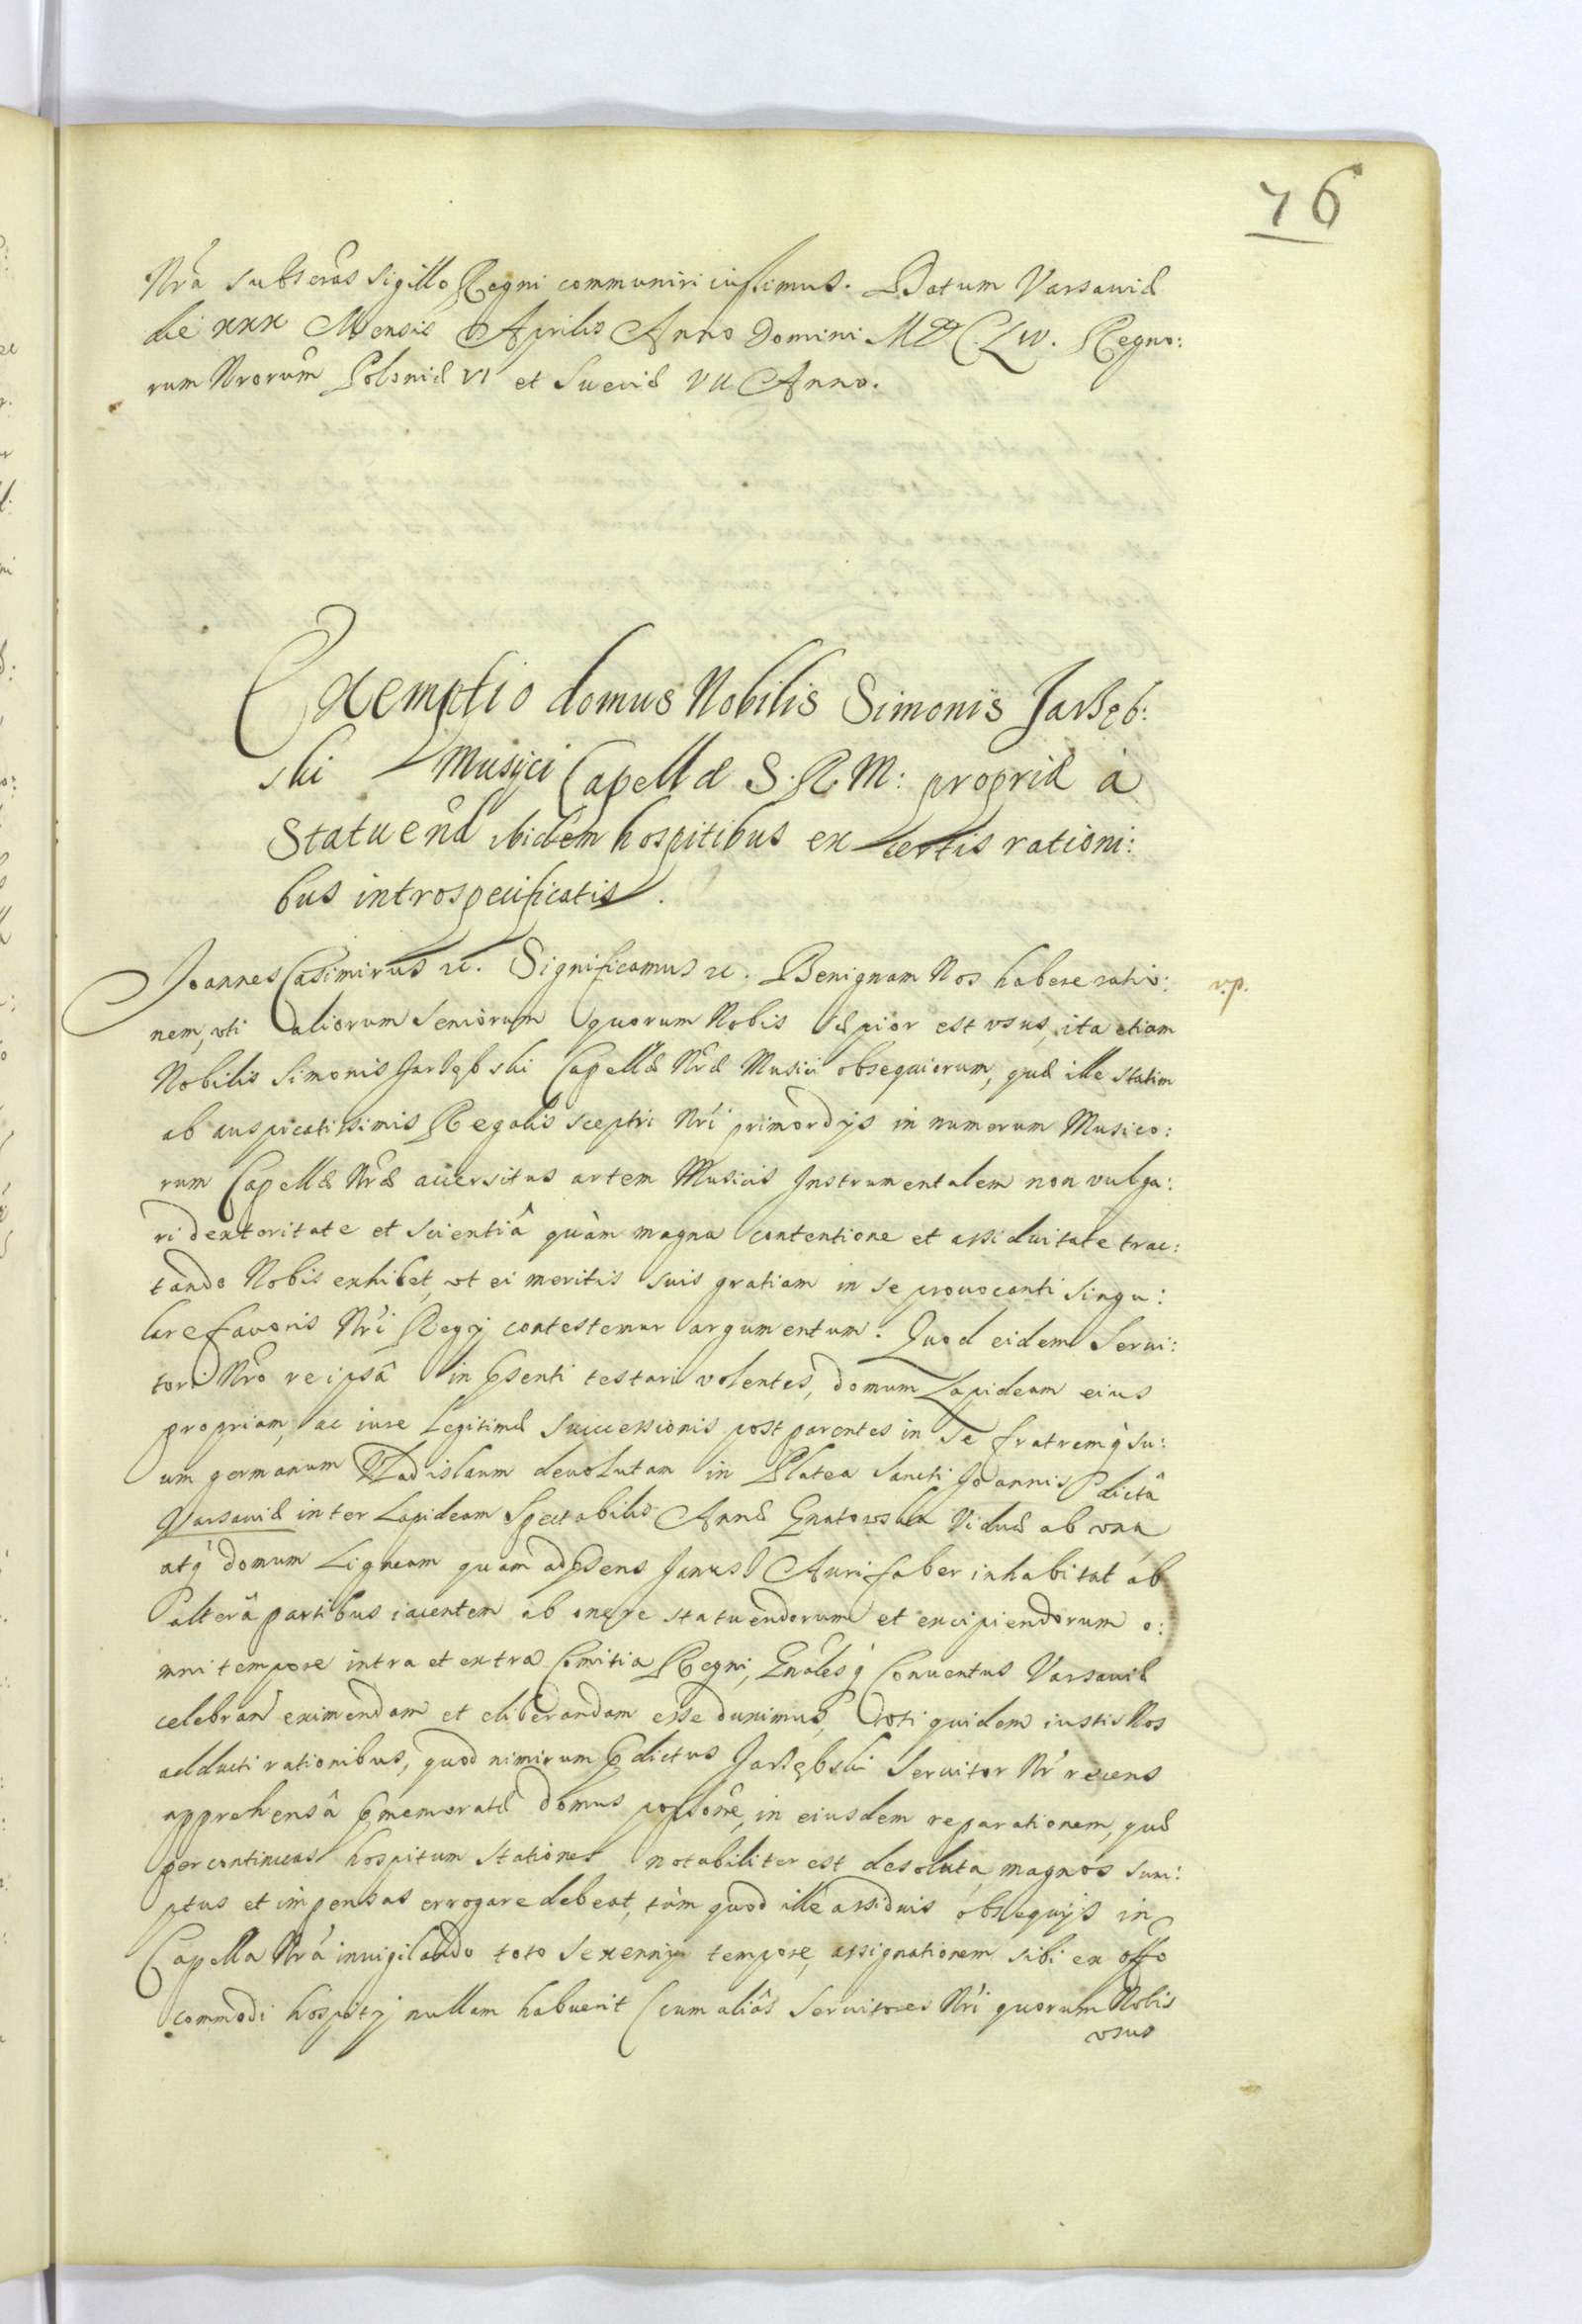 76
Nrã subscrãs Sigillo Regni communiri iussimus. Datum Varsaviæ
die xxx Mensis Aprilis Anno Domini MDCLIV. Regno:
rum Nrorum Poloniæ VI et Sueciæ VII Anno.
Exemptio domus Nobilis Simonis Jarzęb:
ski Musici Capellæ S. R. M: propriæ à
Statuend ibidem hospitibus ex certis rationi:
bus introspecificatis.
Joannes Casimirus etc. Significamus etc. Benignam Nos habere ratio:
v.p.
nem, uti aliorum Seniorum quorum Nobis sæpior est usus, ita etiam
Nobilis Simonis Jarzębski Capellæ Nræ Musici obsequiorum, quæ ille statim
ab auspicatissimis Regalis sceptri Nri primordijs in numerum Musico:
rum Capellæ Nræ accersitus artem Musicis Instrumentalem non vulga:
ri dexteritate et scientiâ quàm magna contentione et assiduitate trac:
tando Nobis exhibet, ut ei meritis suis gratiam in se provocanti singu:
lare favoris Nri Regij contestemur argumentum. Quod eidem Servi:
tori Nro reipsâ in pñsenti testari volentes, domum Lapideam eius
propriam, ac iure Legitimæ Successionis post parentes in se fratremq su:
um germanum Vladislaum devolutam in Platea Sancti Joannis dictâ
Varsaviæ inter Lapideam Spectabilis Annæ Gnatowska Viduæ ab una
atq domum Ligneam quam ad pñsens Aurifaber inhabitat ab
alterâ partibus iacentem ab onere statuendorum et excipiendorum o:
mni tempore intra et extra Comitia Regni, Gnãlesq Conventus Varsaviæ
celebrand eximendam et eliberandam esse duximus, uti quidem iustis Nos
adducti rationibus, quod nimirum pdictus Jarzębski Servitor Nr recens
apprehensâ pmemoratæ domus possõne, in eiusdem reparationem, quæ
per continuas hospitum stationes notabiliter est desoluta, magnos sum:
ptus et impensas errogare debeat, tùm quod ille assiduis obsequijs in
Capella Nrâ invigilando toto sexennij tempore, assignationem sibi ex offo
commodi hospitij nullam habuerit (cum aliâs Servitores Nri quorum Nobis
usus